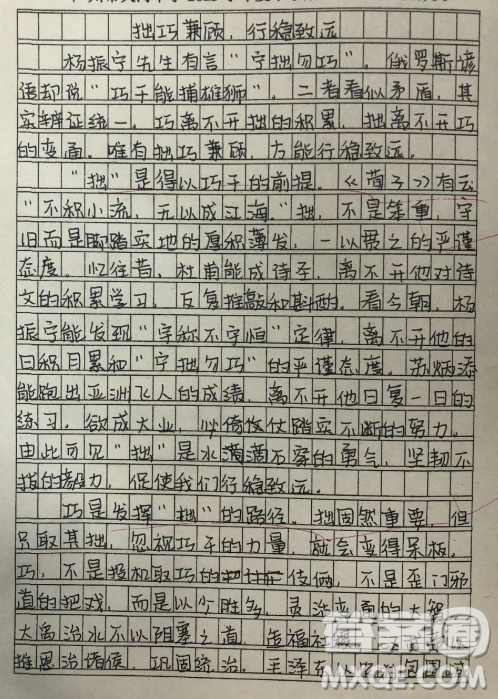 拙巧兼顾，行稳致远
杨振宁先生有言“宁拙勿巧”，俄罗斯谚
语却说“巧干能捕雄狮”，二者看似矛盾，其
实辩证统一。巧离不开拙的积累，拙离不开巧
的变通。唯有拙巧兼顾，方能行稳致远。
“拙”是得以巧干的前提。《荀子》有云
“不积小流，无以成江海。”拙，不是笨重，守
旧而是脚踏实地的厚积薄发，一以贯之的严谨
态度。忆往昔，杜甫能成诗子，离不开他对诗
文的积累学习，反复推敲和斟酌。看今朝，杨
振宁能发现“宇称不守恒”定律，离不开他的
日积月累和“宁拙勿巧”的严谨态度，苏炳添
能跑出亚洲飞人的成绩，离不开他日复一日的
练习。欲成大业，必倚仗踏实不断的努力。
由此可见“拙”是水滴石穿的勇气，坚韧不
拔的毅力，促使我们行稳致远。
巧是发挥“拙”的路径。拙固然重要，但
只取其拙，忽视巧干的力量，就会变得呆板。
巧，不是投机取巧的伎俩，不是歪门邪
道的把戏，而是以少胜多，灵活变通的大智
大禹治水不以阻塞之道，造福社
推恩治诸侯，巩固统治。毛泽东以农村包围城